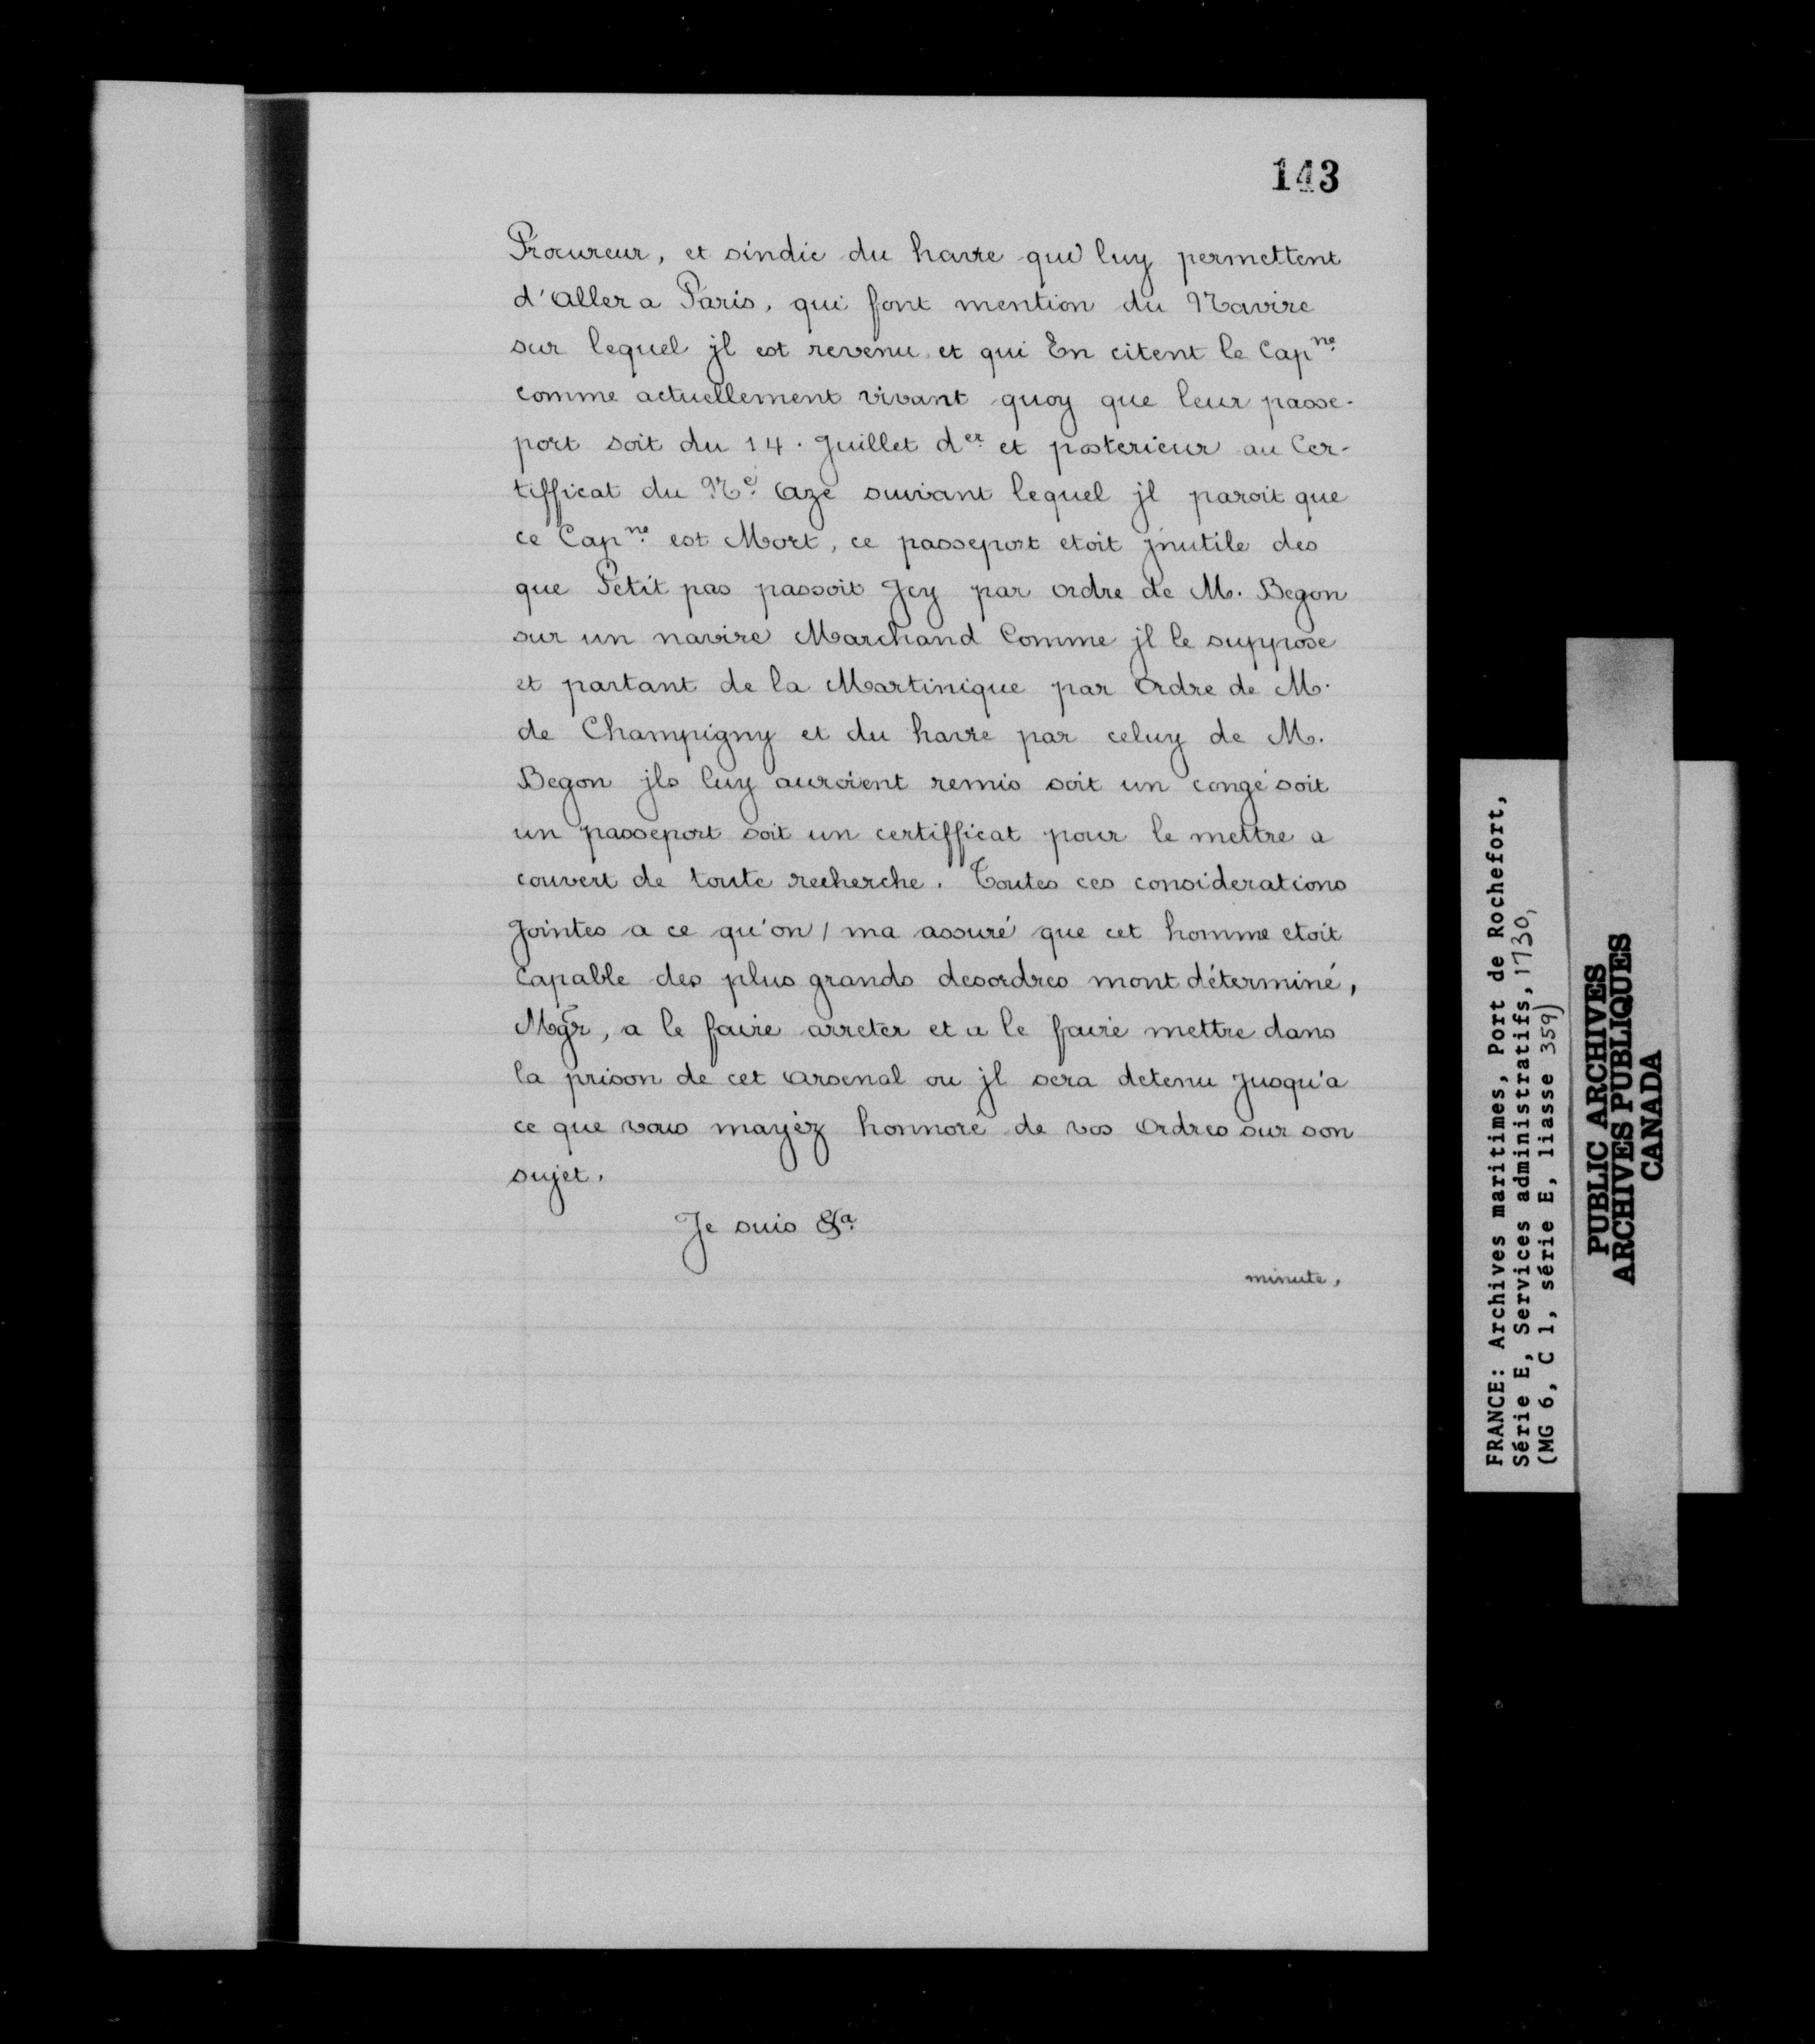 143
Procureur, et sindic du havre qui luy permettent
d'aller a Paris, qui font mention du Navire
sur lequel jl est revenu et qui En citent le Capne
comme actuellement vivant quoy que leur passe-
port soit du 14. Juillet der et posterieur au Cer-
tifficat du Ne Azé suivant lequel jl paroit que
ce Capne est Mort, ce passeport etoit jnutile des
que Petit pas passoit Jcy par ordre de M. Begon
sur un navire Marchand Comme jl le suppose
et partant de la Martinique par Ordre de M.
de Champigny et du havre par celuy de M.
Begon jls luy auroient remis soit un congé soit
un passeport soit un certifficat pour le mettre a
couvert de toute recherche. Toutes ces considerations
Jointes a ce qu'on / ma assuré que cet homme etoit
Capable des plus grands desordres mont déterminé,
Mgr, a le faire arreter et a le faire mettre dans
la prison de cet arsenal ou jl sera detenu Jusqu'a
ce que vous mayéz honnoré de vos Ordres sur son
sujet.
Je suis &a
minute,
FRANCE: Archives maritimes, Port de Rochefort,
Série E, Services administratifs, 1730,
(MG 6, C 1, série E, liasse 359)
PUBLIC ARCHIVES
ARCHIVES PUBLIQUES
CANADA